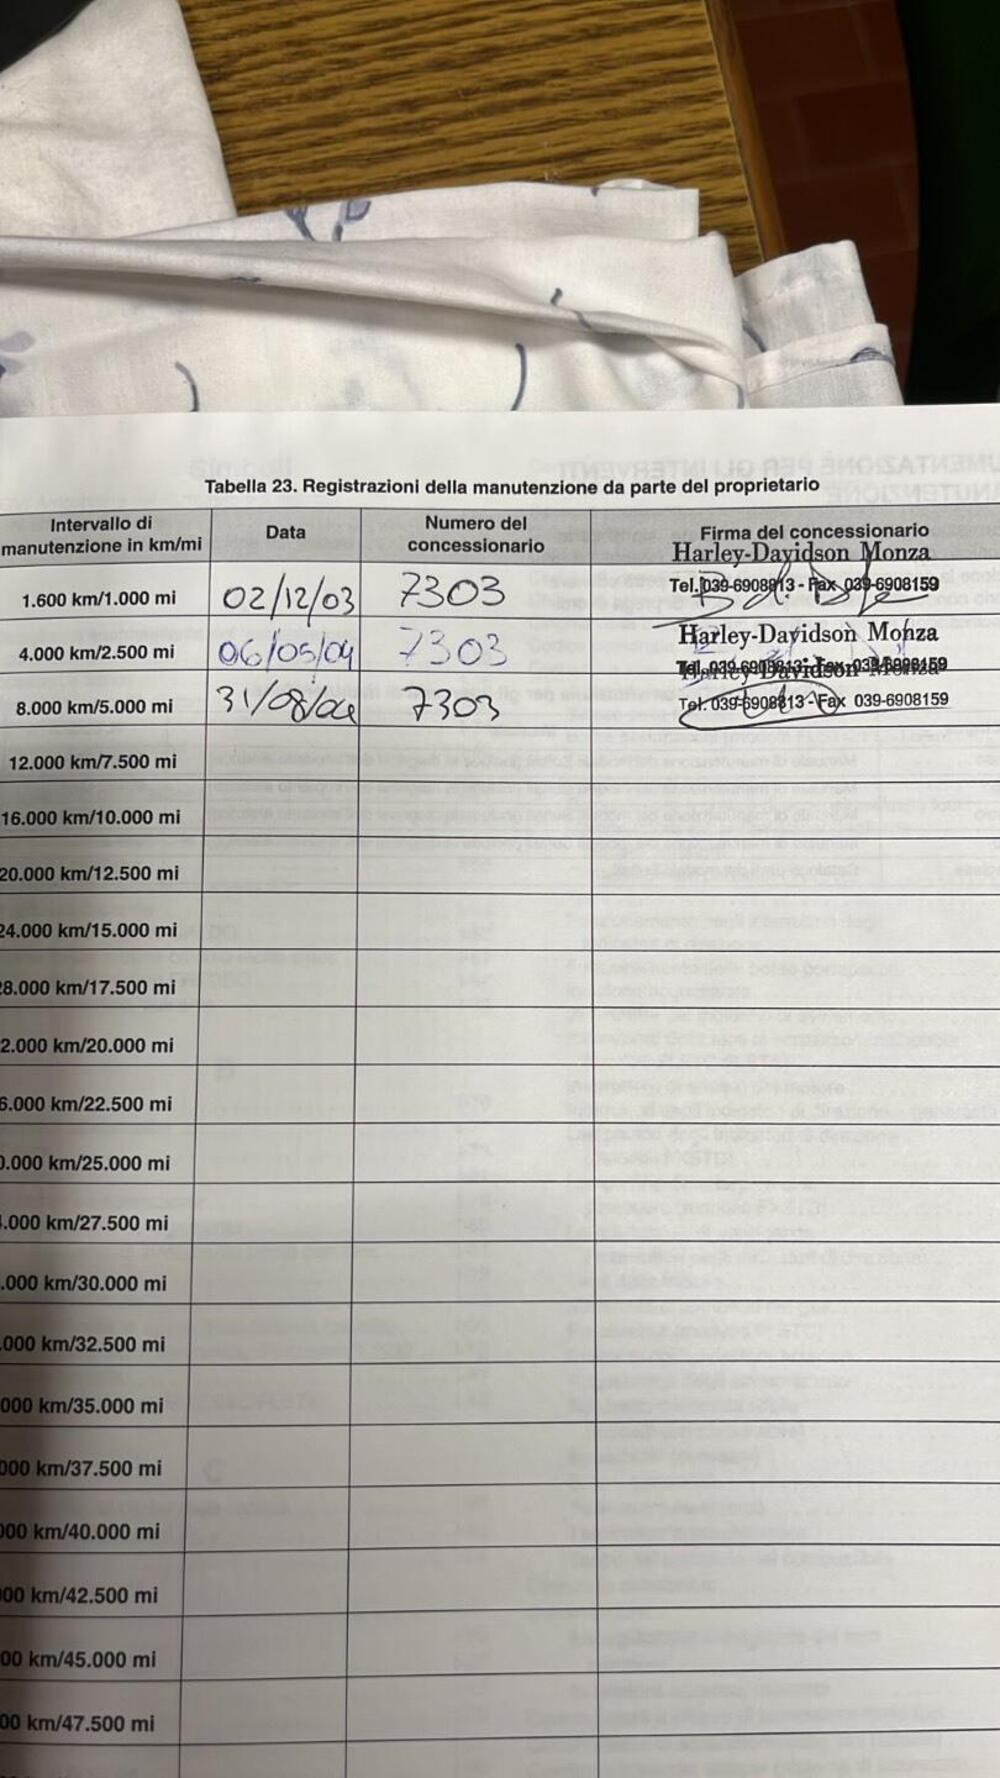 Tabella 23. Registrazioni della manutenzione da parte del proprietario
Intervallo di manutenzione in km/mi Data Numero del concessionario Firma del concessionario
Harley-Davidson Monza
1.600 km/1.000 mi 02/12/03 7303 Tel. 039-6908813 - Fax 039-6908159
Harley-Davidson Monza
4.000 km/2.500 mi 06/05/04 7303 Tel. 039-6908813 - Fax 039-6908159
Harley-Davidson Monza
8.000 km/5.000 mi 31/08/04 7303 Tel. 039-6908813 - Fax 039-6908159
12.000 km/7.500 mi
16.000 km/10.000 mi
20.000 km/12.500 mi
24.000 km/15.000 mi
8.000 km/17.500 mi
2.000 km/20.000 mi
6.000 km/22.500 mi
0.000 km/25.000 mi
.000 km/27.500 mi
.000 km/30.000 mi
000 km/32.500 mi
000 km/35.000 mi
000 km/37.500 mi
000 km/40.000 mi
00 km/42.500 mi
00 km/45.000 mi
00 km/47.500 mi